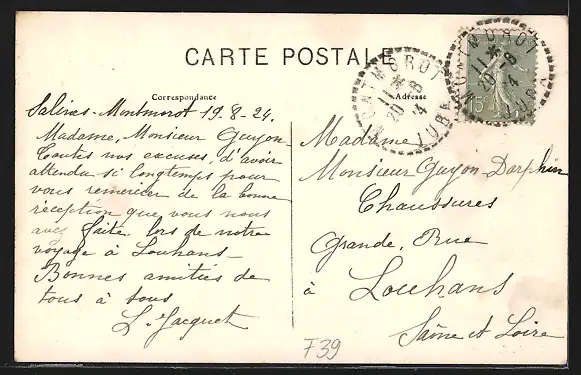 CARTE POSTALE
Correspondance
Adresse
MONTMOROT
11 *
20 - 8
24
JURA
15c
Salines-Montmorot 19-8-24.
Madame, Monsieur Guyon
Toutes nos excuses, d'avoir
attendu si longtemps pour
vous remercier de la bonne
réception que vous nous
avez faite. lors de notre
voyage à Louhans-
Bonnes amitiés de
tous à tous
L. Jacquet
Madame
Monsieur Guyon Dorphin
Chaussures
Grande. Rue
à Louhans
Saône et Loire
F39